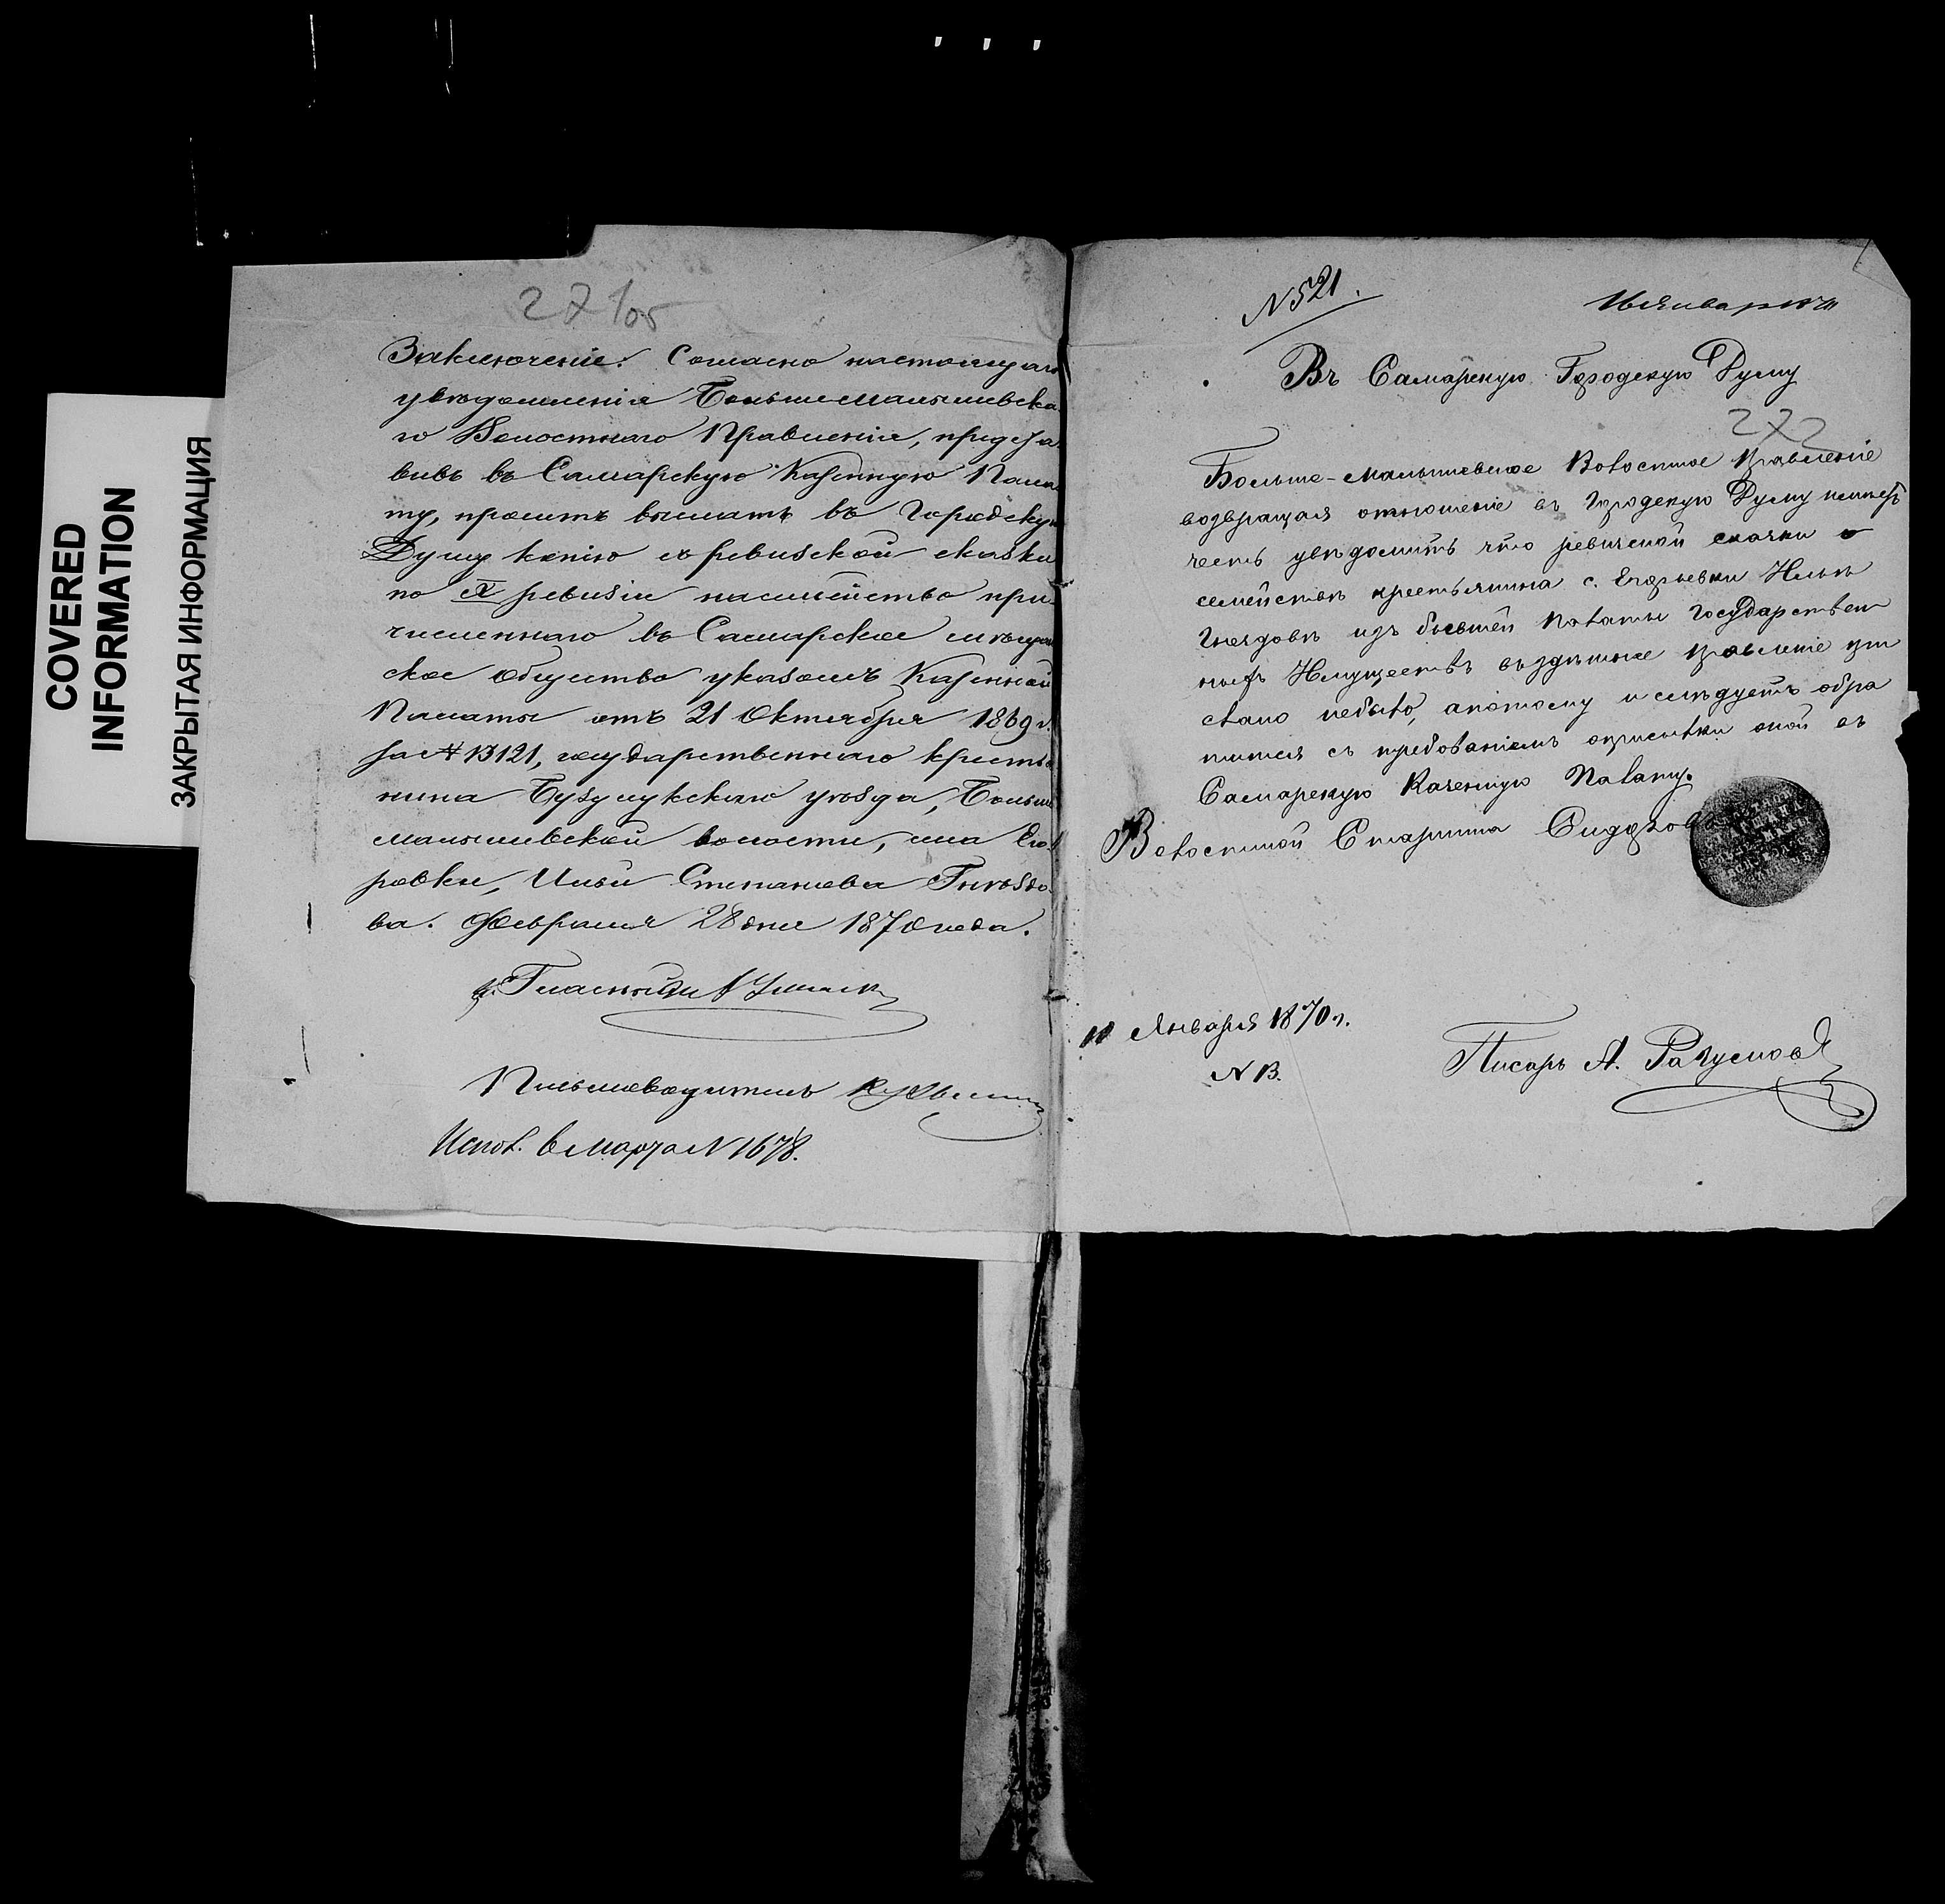 COVERED
INFORMATION
ЗАКРЫТАЯ ИНФОРМАЦИЯ
271 об
Заключеніе. Согласно настоящаго
увѣдомленія Больше Малышевска
го Волостнаго Правленія, предста
вивъ въ Самарскую Казенную Пала
ту, просить выслать въ Городскую
Думу копію съ ревизской сказки
по X ревизіи на семейство при
численнаго въ Самарское мѣщан
ское общество указомъ Казенной
Палаты отъ 21 Октября 1869 г.
за № 13121, государственнаго крестья
нина Бузулукскаго уѣзда, Больше
малышевской волости, села Его
ровки, Ильи Степанова Гнѣздо
ва. Февраля 28 дня 1870 года.
Гласный
Письмоводитель
Испол. 6 Марта N 1678.
N 521.
Въ Самарскую Городскую Думу
272
Больше-Малышевское Волостное Правленіе
возвращая отношеніе въ Городскую Думу имѣетъ
честь увѣдомить что ревизской сказки о
семействѣ крестьянина с. Егорьевки Ильѣ
Гнездовѣ изъ бывшей Палаты Государствен
ныхъ Имуществъ въ здѣшнее правленіе при
слано небыло, апотому и слѣдуетъ обра
титься съ требованіемъ о присылки оной въ
Самарскую Казенную Палату.
Волостной Старшина Сидоровъ
10 Января 1870 г.
N 13.
Писарь А. Разумовъ